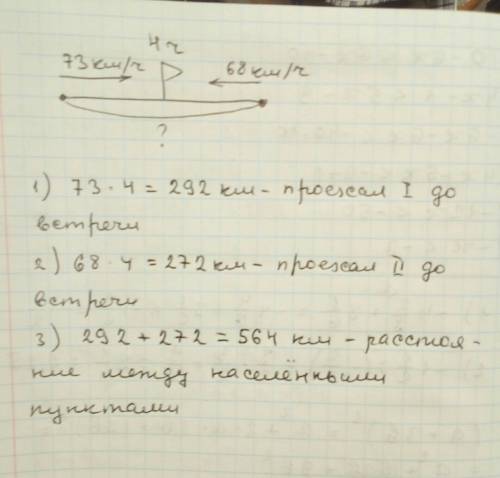 4 ч
73 км/ч
68 км/ч
?
1) 73 · 4 = 292 км - проехал I до
встречи
2) 68 · 4 = 272 км - проехал II до
встречи
3) 292 + 272 = 564 км - расстоя-
ние между населёнными
пунктами